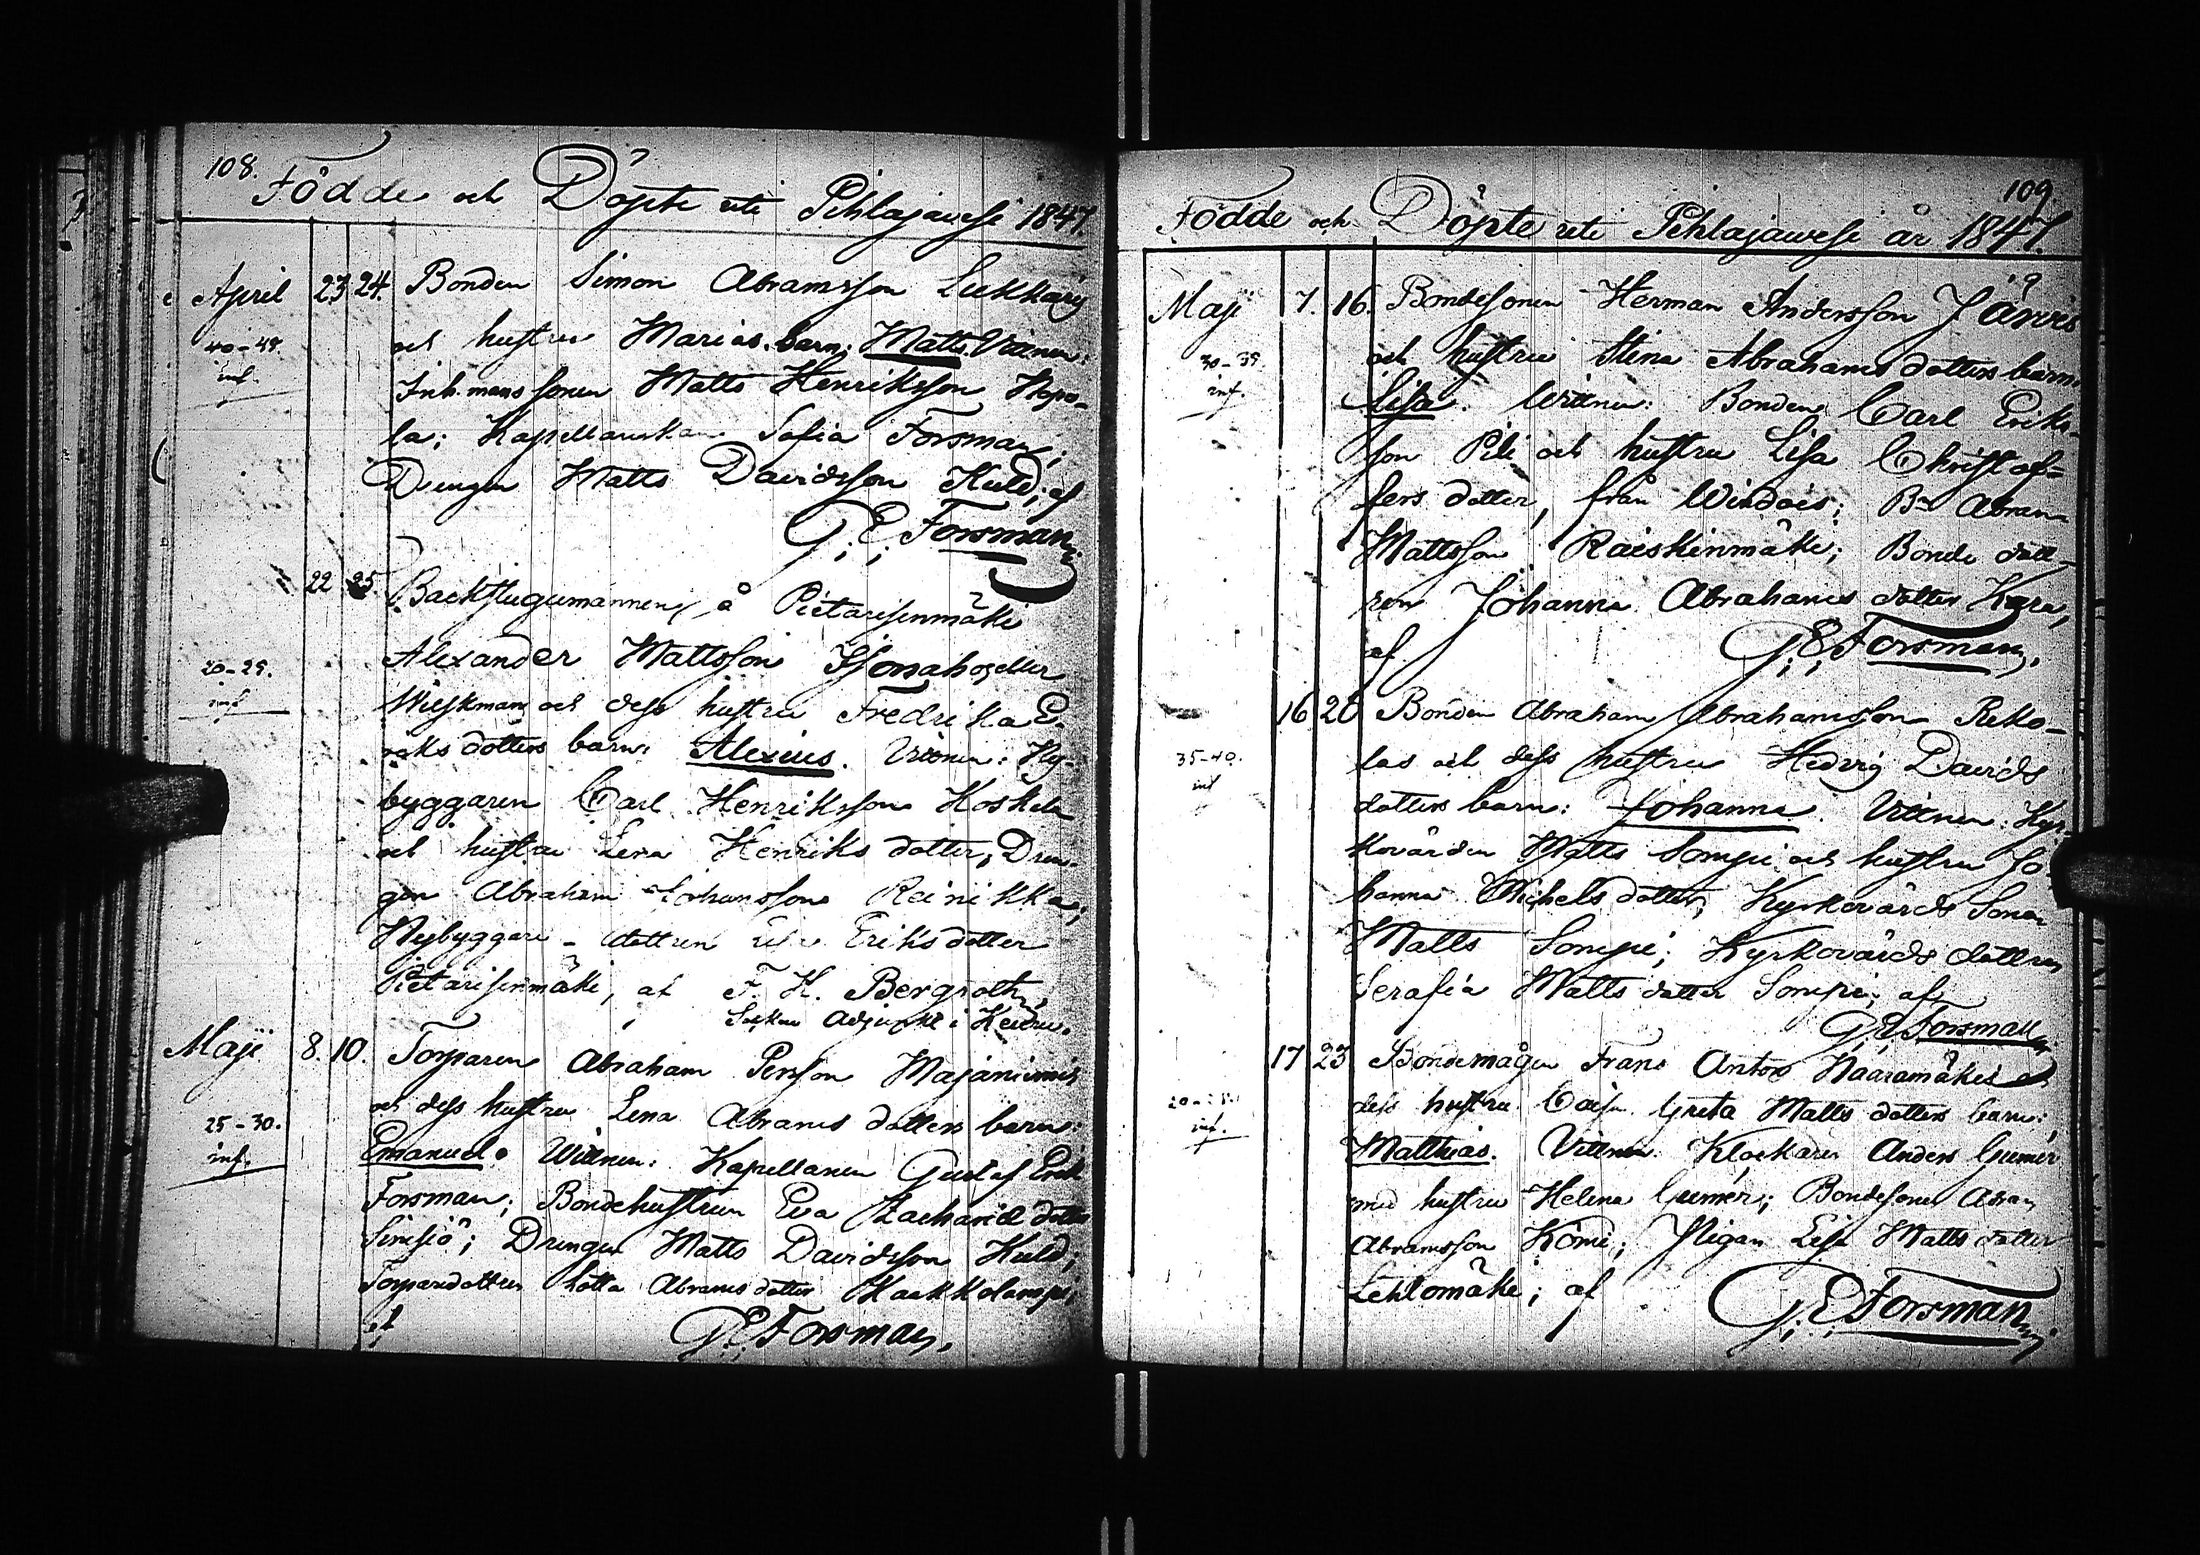 108.
Födde och Döpte uti Pihlajawesi 1847.
April 23 24. Bonden Simon Abramsson Liekkari
och hustru Marias barn: Matts. Vittnen:
40-45. inf.
Inh. mans sonen Matts Henriksson Hepo-
la; Kapellanskan Sofia Forsman;
Drengen Matts Davidsson Kuld; af
G. E. Forsman.
22 25. Backstugumannen å Pietarisenmäki
Alexander Mattsson eller
20-25. inf.
och dess hustru Fredrika E-
riks dotters barn: Alexius. Vittnen: Ny-
byggaren Carl Henriksson Koskela
och hustru Lena Henriks dotter; Dren-
gen Abraham Johansson Reinikka;
Nybyggare-dottren Eriks dotter
Pietarisenmäki, af F. H. Bergroth,
Adjunkt i Keuru.
Maji 8. 10. Torparen Abraham Persson Majaniemis
och dess hustru Lena Abrams dotters barn:
25-30. inf.
Emanuel. Wittnen: Kapellanen Gustaf Erik
Forsman; Bondehustrun Eva Zacharié dotter
Sinisjö; Drengen Matts Davidsson Kuld;
Torparedottren Lotta Abrams dotter
af G. E. Forsman.
109
Födde och Döpte uti Pihlajawesi år 1847.
Maji 7. 16. Bondesonen Herman Andersson Järvis
och hustru Stina Abrahams dotters barn:
30-35. inf.
Lisa. Wittnen: Bonden Carl Eriks-
son Pili och hustru Lisa Christof-
fers dotter, från Wirdois; Bn Abram
Mattsson Raiskinmäki; Bonde dott-
ren Johanna Abrahams dotter Kära,
af G. E. Forsman.
16 20 Bonden Abraham Abrahamsson Reko-
las och dess hustru Hedvig Davids
35-40. inf
dotters barn: Johanna. Vittnen: Kyr-
kovärden Matts Sompi och hustru Jo-
hanna Michels dotter; Kyrkovärds Sonen
Matts Sompi; Kyrkovärds dottren
Serafia Matts dotter Sompi; af
G. E. Forsman
17 23 Bondemågen Frans Antons Haaramäkis och
dess hustru Caisa Greta Matts dotters barn:
inf.
Matthias. Vittnen: Klockaren Anders Gumér
med hustru Helena Gumér; Bondesonen Abram
Abramsson Kömi; Pigan Lisa Matts dotter
Lehtomäki; af G. E. Forsman